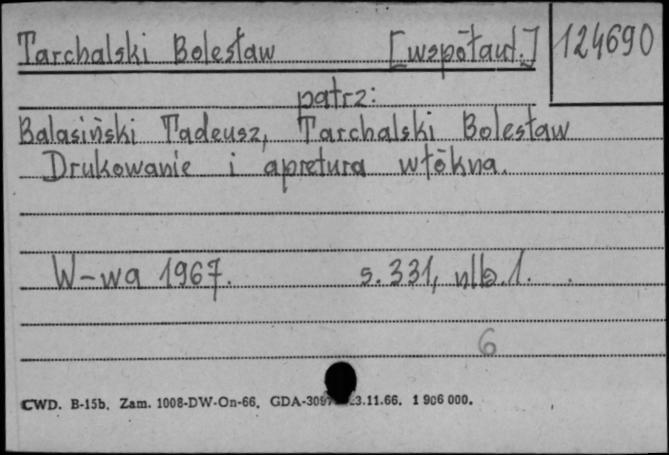 Tarchalski Bolesław [współaut.] 124690
patrz:
Balasiński Tadeusz, Tarchalski Bolesław
Drukowanie i apretura włókna.
W-wa 1967. s. 331, nlb. 1.
6
CWD. B-15b. Zam. 1008-DW-On-66. GDA- .11.66. 1 906 000.